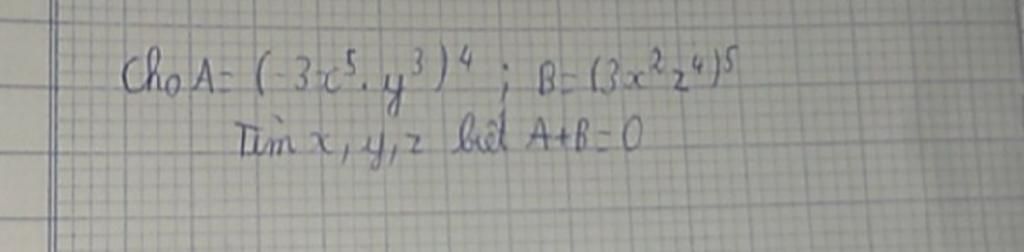 Cho A = (-3x⁵.y³)⁴ ; B = (3x²z⁴)⁵
Tìm x, y, z biết A+B=0